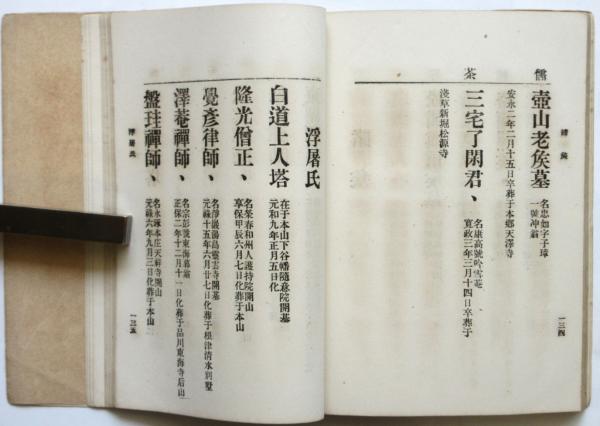 儒
壺山老矦墓
名忠如字子璋
一號冲翁
安永二年二月十五日卒葬于本郷天澤寺
茶
三宅了閑君、
名康高號吟雪菴
寛政三年三月十四日卒葬于
淺草新堀松源寺
一三四
浮屠氏
白道上人塔
在于本山下谷幡隨意院開基
元和九年正月五日化
隆光僧正、
名榮春和州人護持院開山
享保甲辰六月七日化葬于本山
覺彦律師、
名淨嚴湯島靈雲寺開基
元祿十五年六月廿七日化葬于根津清水別墅
澤菴禪師、
名宗彭
東海
正保二年十二月十一日化葬于品川東海寺后山
盤珪禪師、
名永琢本庄天祥寺開山
元祿六年九月三日化葬于本山
浮屠氏
一三五